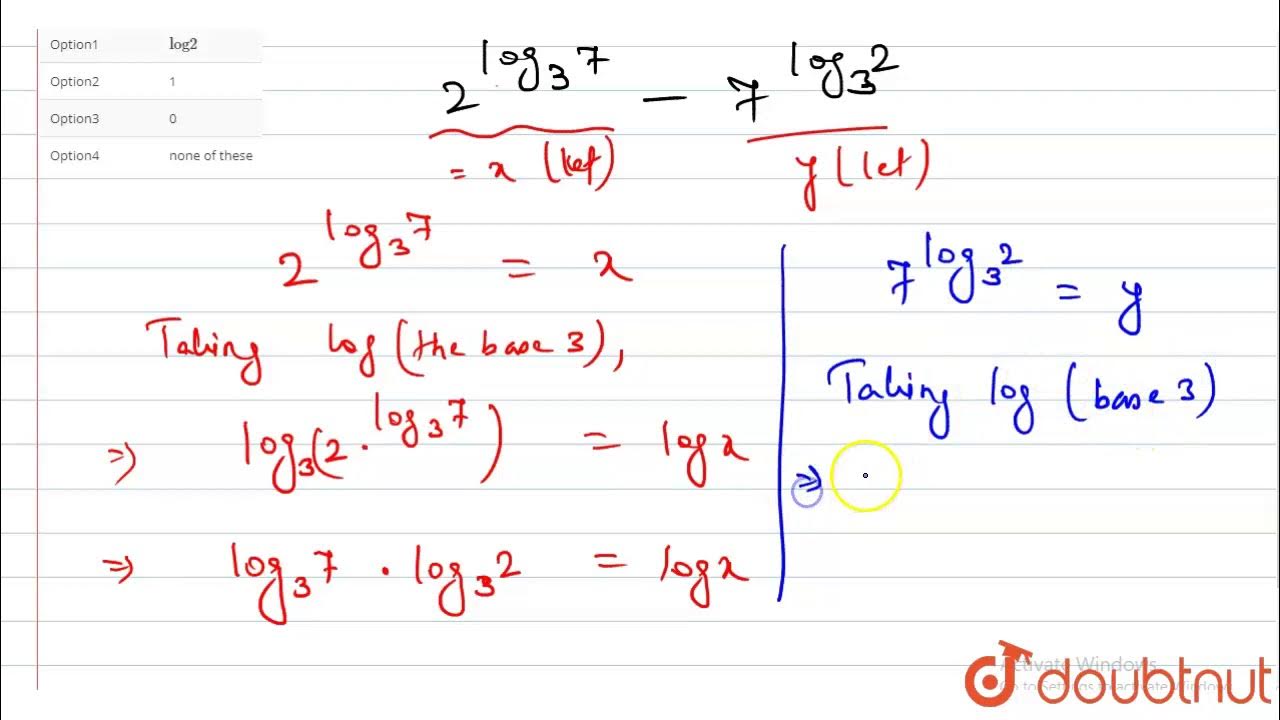 Option1 log2
Option2 1
Option3 0
Option4 none of these
2^{log_3 7} - 7^{log_3 2}
= x (let) y (let)
2^{log_3 7} = x
Taking log (the base 3),
⇒ log_3(2 · ^{log_3 7}) = log x
⇒ log_3 7 · log_3 2 = log x
7^{log_3 2} = y
Taking log (base 3)
⇒
Activate Windows
Go to Settings to activate Windows
doubtnut